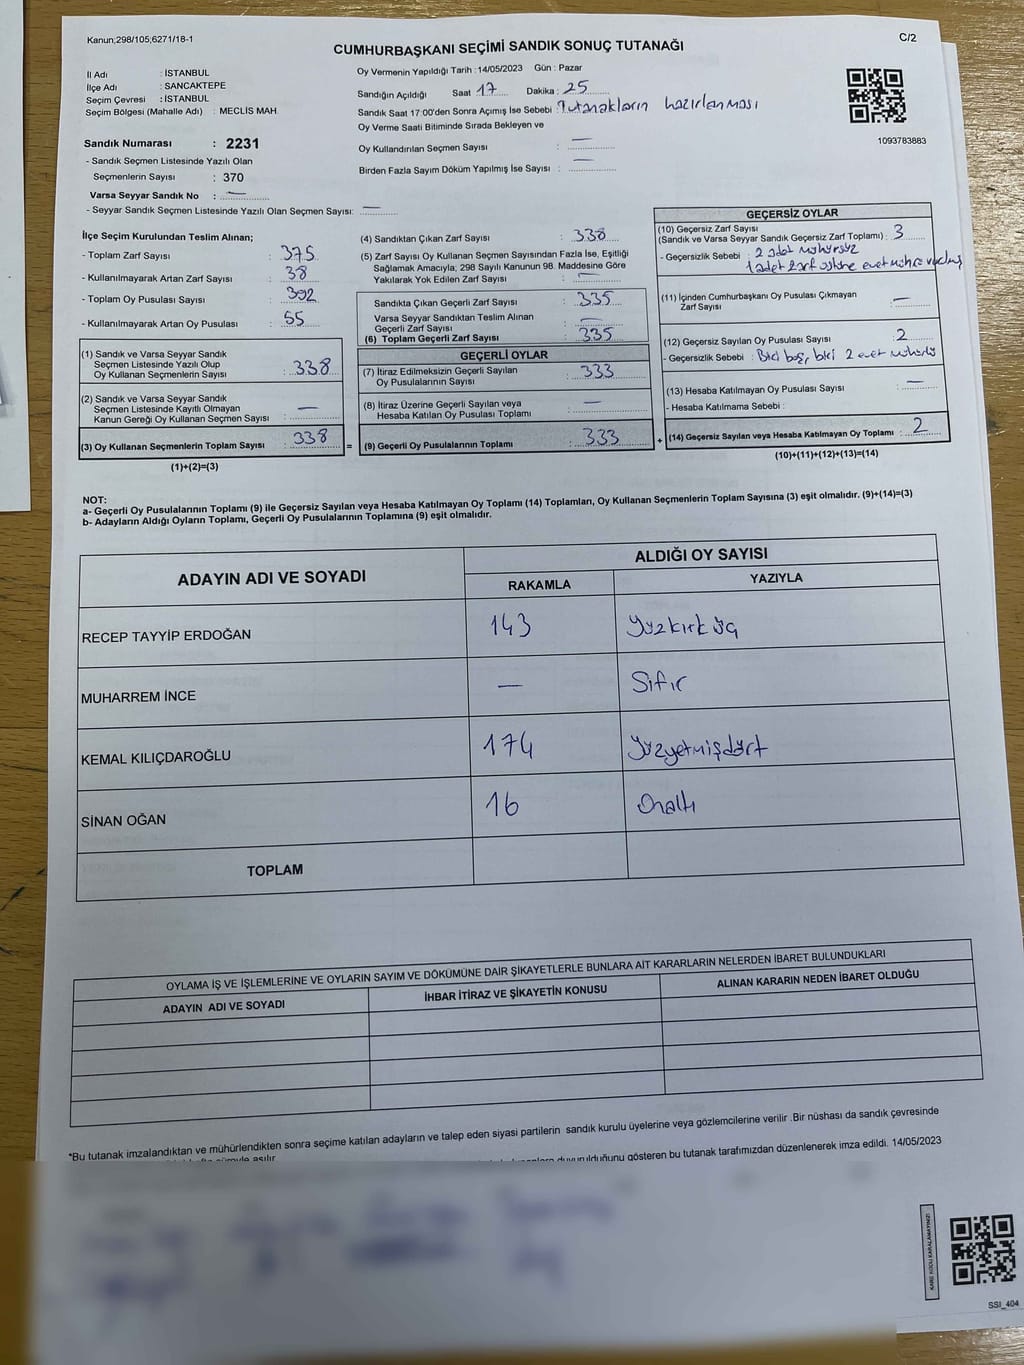 Kanun;298/105;6271/18-1
C/2
CUMHURBAŞKANI SEÇİMİ SANDIK SONUÇ TUTANAĞI
İl Adı : İSTANBUL
İlçe Adı : SANCAKTEPE
Seçim Çevresi : İSTANBUL
Seçim Bölgesi (Mahalle Adı) : MECLİS MAH.
Sandık Numarası : 2231
- Sandık Seçmen Listesinde Yazılı Olan
Seçmenlerin Sayısı : 370
Varsa Seyyar Sandık No : —
- Seyyar Sandık Seçmen Listesinde Yazılı Olan Seçmen Sayısı: —
Oy Vermenin Yapıldığı Tarih : 14/05/2023 Gün : Pazar
Sandığın Açıldığı Saat 17 Dakika : 25
Sandık Saat 17:00'den Sonra Açımış İse Sebebi : Tutanakların hazırlanması
Oy Verme Saati Bitiminde Sırada Bekleyen ve
Oy Kullandırılan Seçmen Sayısı : —
Birden Fazla Sayım Döküm Yapılmış İse Sayısı : —
1093783883
İlçe Seçim Kurulundan Teslim Alınan;
- Toplam Zarf Sayısı : 375
- Kullanılmayarak Artan Zarf Sayısı : 38
- Toplam Oy Pusulası Sayısı : 392
- Kullanılmayarak Artan Oy Pusulası : 55
(1) Sandık ve Varsa Seyyar Sandık
Seçmen Listesinde Yazılı Olup
Oy Kullanan Seçmenlerin Sayısı : 338
(2) Sandık ve Varsa Seyyar Sandık
Seçmen Listesinde Kayıtlı Olmayan
Kanun Gereği Oy Kullanan Seçmen Sayısı : —
(3) Oy Kullanan Seçmenlerin Toplam Sayısı : 338
(1)+(2)=(3)
(4) Sandıktan Çıkan Zarf Sayısı : 338
(5) Zarf Sayısı Oy Kullanan Seçmen Sayısından Fazla İse, Eşitliği
Sağlamak Amacıyla; 298 Sayılı Kanunun 98. Maddesine Göre
Yakılarak Yok Edilen Zarf Sayısı : —
Sandıkta Çıkan Geçerli Zarf Sayısı : 335
Varsa Seyyar Sandıktan Teslim Alınan
Geçerli Zarf Sayısı : —
(6) Toplam Geçerli Zarf Sayısı : 335
GEÇERLİ OYLAR
(7) İtiraz Edilmeksizin Geçerli Sayılan
Oy Pusulalarının Sayısı : 333
(8) İtiraz Üzerine Geçerli Sayılan veya
Hesaba Katılan Oy Pusulası Toplamı : —
= (9) Geçerli Oy Pusulalarının Toplamı : 333
GEÇERSİZ OYLAR
(10) Geçersiz Zarf Sayısı
(Sandık ve Varsa Seyyar Sandık Geçersiz Zarf Toplamı) : 3
- Geçersizlik Sebebi : 2 adet mühürsüz
1 adet zarf üstüne evet mührü
(11) İçinden Cumhurbaşkanı Oy Pusulası Çıkmayan
Zarf Sayısı : —
(12) Geçersiz Sayılan Oy Pusulası Sayısı : 2
- Geçersizlik Sebebi : Biri boş, biri 2 evet mühürlü
(13) Hesaba Katılmayan Oy Pusulası Sayısı : —
- Hesaba Katılmama Sebebi :
+ (14) Geçersiz Sayılan veya Hesaba Katılmayan Oy Toplamı : 2
(10)+(11)+(12)+(13)=(14)
NOT:
a- Geçerli Oy Pusulalarının Toplamı (9) ile Geçersiz Sayılan veya Hesaba Katılmayan Oy Toplamı (14) Toplamları, Oy Kullanan Seçmenlerin Toplam Sayısına (3) eşit olmalıdır. (9)+(14)=(3)
b- Adayların Aldığı Oyların Toplamı, Geçerli Oy Pusulalarının Toplamına (9) eşit olmalıdır.
ADAYIN ADI VE SOYADI
ALDIĞI OY SAYISI
RAKAMLA YAZIYLA
RECEP TAYYİP ERDOĞAN 143 Yüzkırküç
MUHARREM İNCE — Sıfır
KEMAL KILIÇDAROĞLU 174 Yüzyetmişdört
SİNAN OĞAN 16 Onaltı
TOPLAM
OYLAMA İŞ VE İŞLEMLERİNE VE OYLARIN SAYIM VE DÖKÜMÜNE DAİR ŞİKAYETLERLE BUNLARA AİT KARARLARIN NELERDEN İBARET BULUNDUKLARI
ADAYIN ADI VE SOYADI İHBAR İTİRAZ VE ŞİKAYETİN KONUSU ALINAN KARARIN NEDEN İBARET OLDUĞU
*Bu tutanak imzalandıktan ve mühürlendikten sonra seçime katılan adayların ve talep eden siyasi partilerin sandık kurulu üyelerine veya gözlemcilerine verilir .Bir nüshası da sandık çevresinde
asılır. duyurulduğunu gösteren bu tutanak tarafımızdan düzenlenerek imza edildi. 14/05/2023
KARE KODU KARALAMAYINIZ!
SSI_404